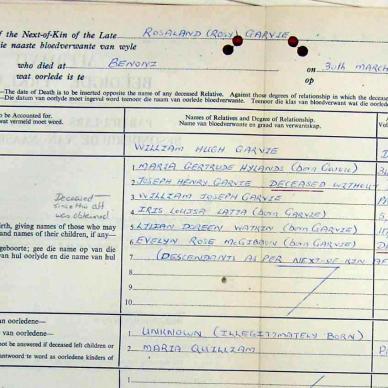 of the Next-of-Kin of the Late ROSALAND (ROSY) GARVIE
die naaste bloedverwante van wyle
who died at BENONI on 30th MARCH
wat oorlede is te op
—The date of Death is to be inserted opposite the name of any deceased Relative. Against those degrees of relationship in which the deceased
—Die datum van oorlede moet ingevul word teenoor die naam van oorlede bloedverwante. Teenoor die klas van bloedverwant wat die oorlede
to be Accounted for.
vermeld moet word.
Names of Relatives and Degree of Relationship.
Name van bloedverwante en graad van verwantskap.
WILLIAM HUGH GARVIE
1 MARIA GERTRUDE HYLANDS (born GARVIE)
2 JOSEPH HENRY GARVIE DECEASED WITHOUT
3 WILLIAM JOSEPH GARVIE
4 IRIS LOUISA LATTA (born GARVIE)
5 LILIAN DOREEN WATKIN (born GARVIE)
6 EVELYN ROSE McGIBBON (born GARVIE)
7 (DESCENDANTS AS PER NEXT-OF-KIN AF
8
9
10
Deceased
since this aff
was obtained
birth, giving names of those who may
and names of their children, if any—
geboorte; gee die name op van die
van hul oorlede en die name van hul
van oorledene—
1 UNKNOWN (ILLEGITIMATELY BORN)
2 MARIA QUILLIAM
not be answered if deceased left children or
beantwoord te word as oorledene kinders of
1